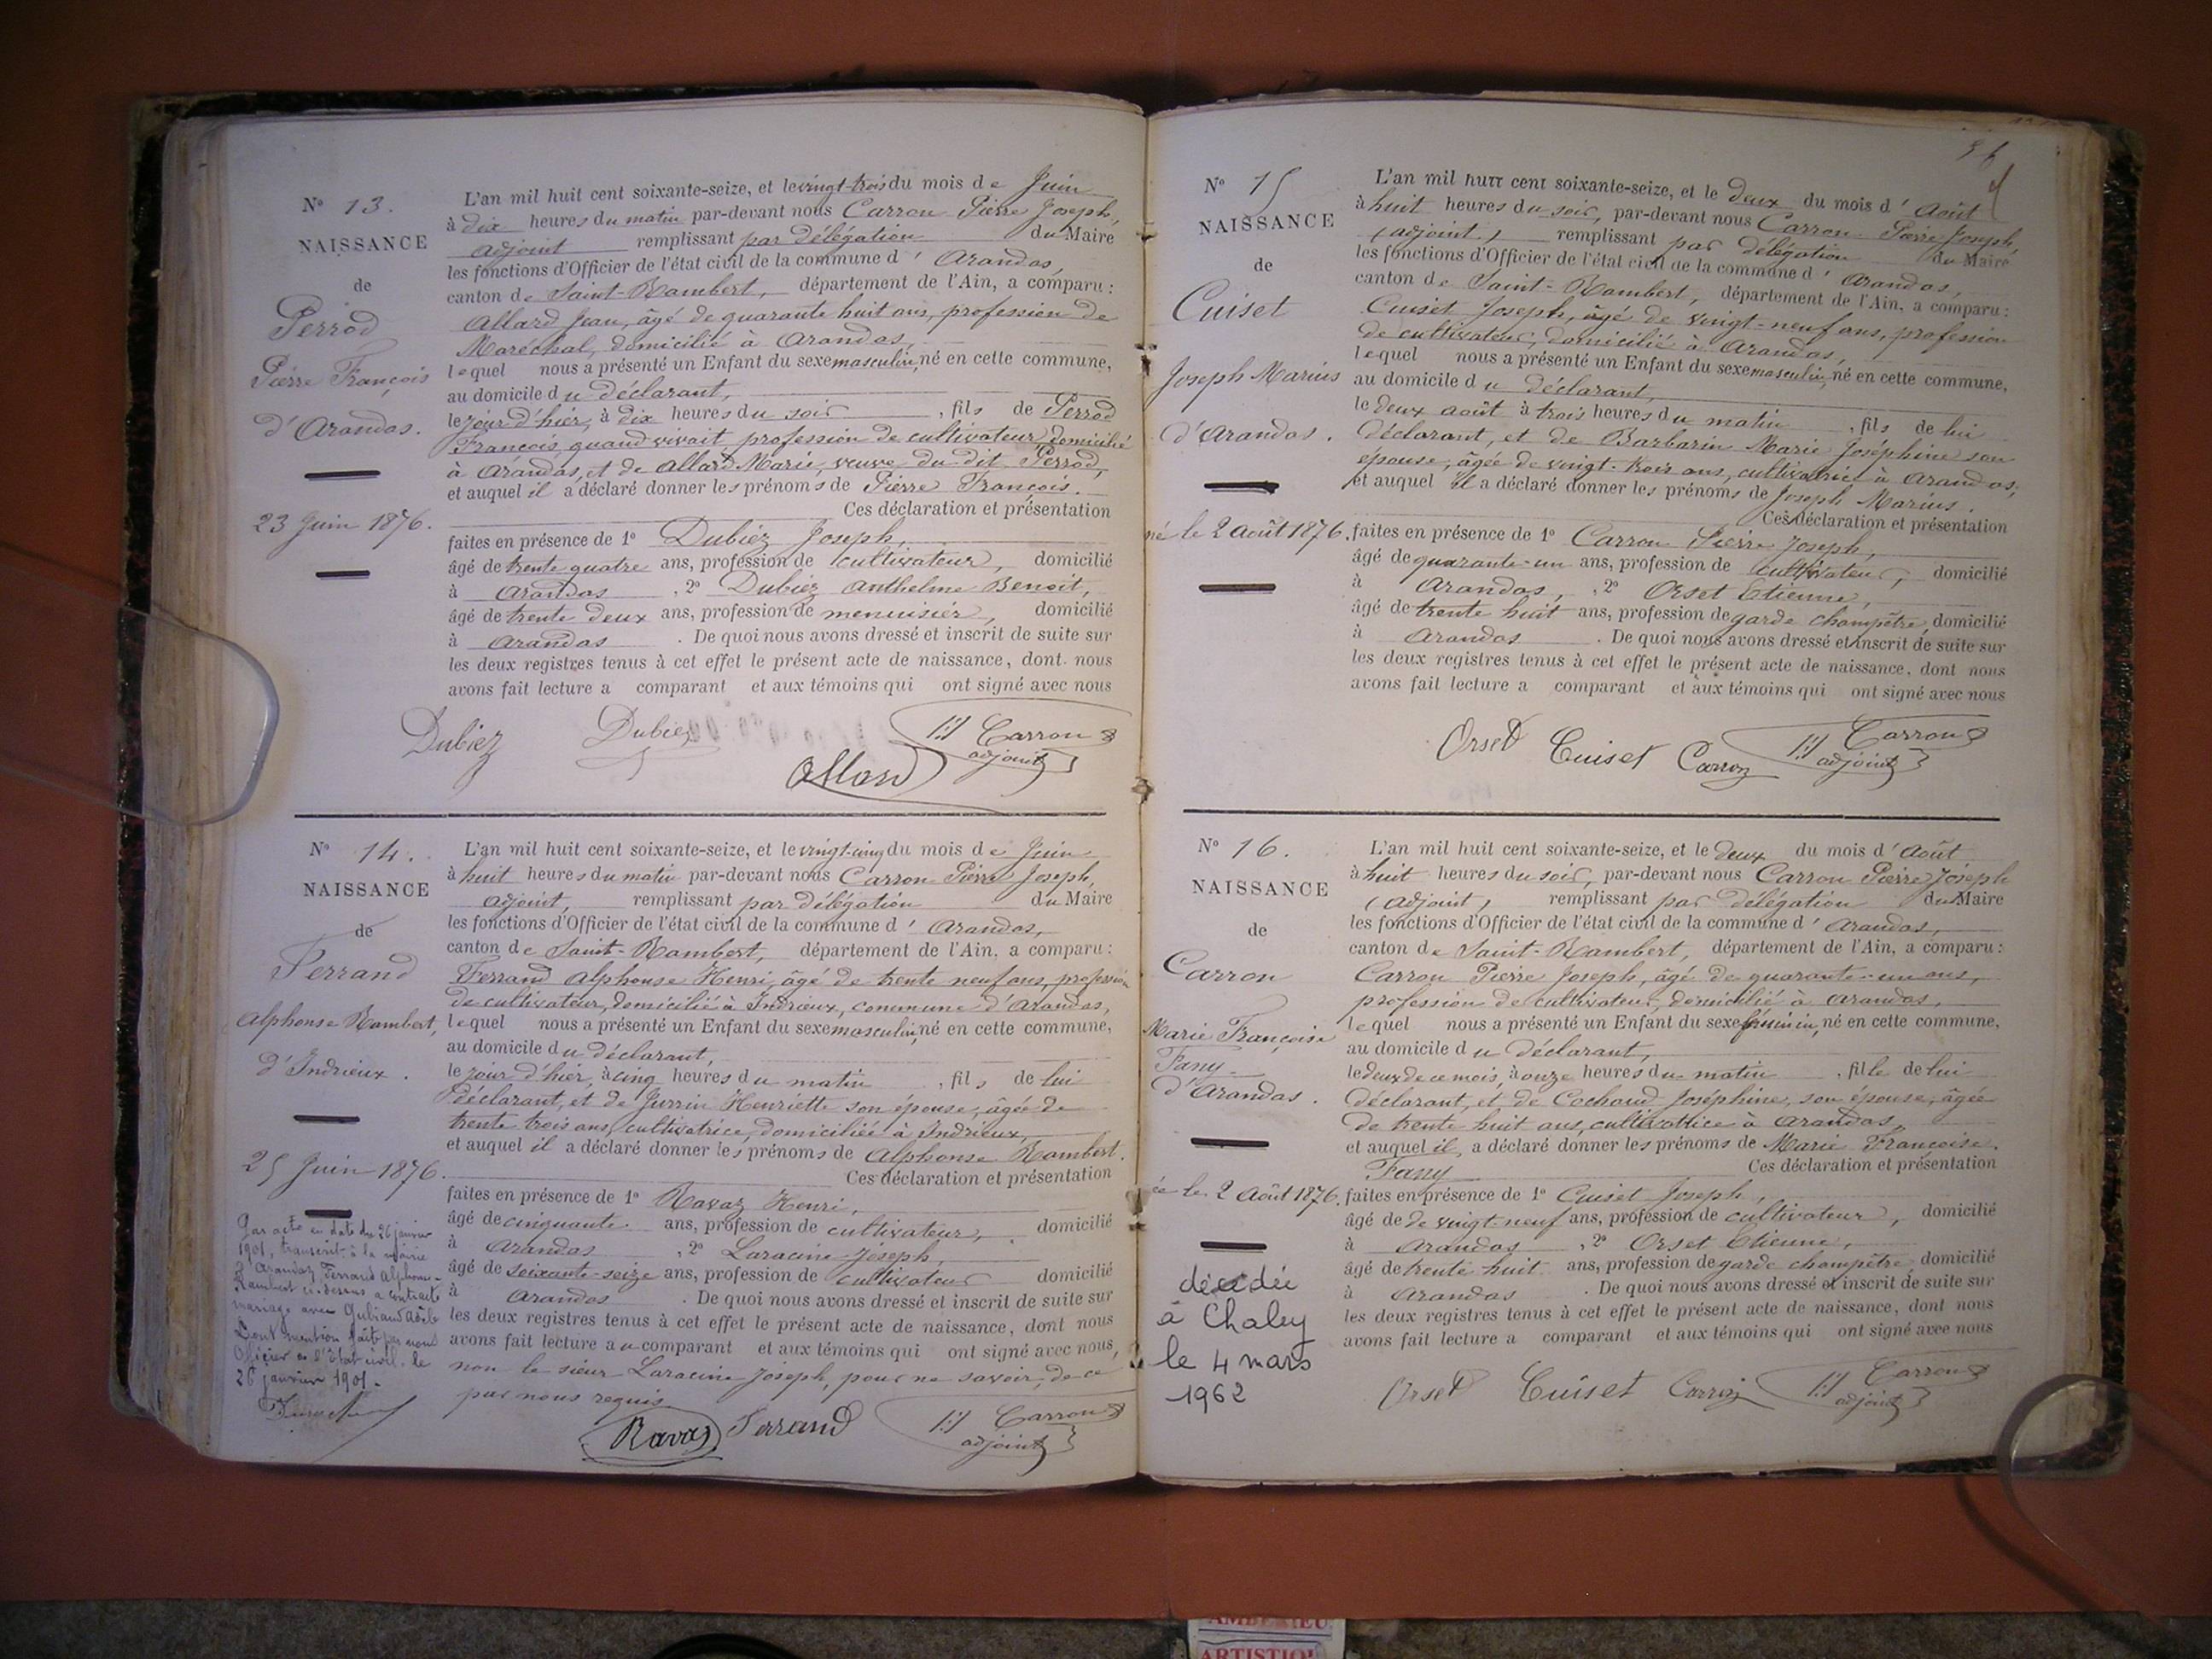 N° 13.
NAISSANCE
de
Perrod
Pierre François
d'Arandas.
23 Juin 1876.
L'an mil huit cent soixante-seize, et le vingt-trois du mois de Juin
à dix heures du matin par-devant nous Carron Pierre Joseph,
adjoint remplissant par délégation du Maire
les fonctions d'Officier de l'état civil de la commune d'Arandas,
canton de Saint-Rambert, département de l'Ain, a comparu :
Allard Jean, âgé de quarante huit ans, profession de
Maréchal, domicilié à Arandas,
lequel nous a présenté un Enfant du sexe masculin, né en cette commune,
au domicile du déclarant,
le jour d'hier, à dix heures du soir, fils de Perrod
François, quand vivait profession de cultivateur domicilié
à Arandas, et de Allard Marie, veuve du dit Perrod,
et auquel il a déclaré donner les prénoms de Pierre François.
Ces déclaration et présentation
faites en présence de 1° Dubiez Joseph,
âgé de trente quatre ans, profession de cultivateur, domicilié
à Arandas, 2° Dubiez Anthelme Benoit,
âgé de trente deux ans, profession de menuisier, domicilié
à Arandas. De quoi nous avons dressé et inscrit de suite sur
les deux registres tenus à cet effet le présent acte de naissance, dont nous
avons fait lecture a comparant et aux témoins qui ont signé avec nous
Dubiez Dubiez Carron
adjoint
Allard
N° 14.
NAISSANCE
de
Ferrand
Alphonse Rambert,
d'Indrieux.
25 Juin 1876.
Par acte en date du 26 janvier
1901, transcrit à la mairie
d'Arandaz, Ferrand Alphonse-
Rambert ci-dessus a contracté
mariage avec Adèle
Dont mention faite par nous
Officier de l'Etat civil. le
26 janvier 1901.
L'an mil huit cent soixante-seize, et le vingt-cinq du mois de Juin
à huit heures du matin par-devant nous Carron Pierre Joseph,
adjoint, remplissant par délégation du Maire
les fonctions d'Officier de l'état civil de la commune d'Arandas,
canton de Saint-Rambert, département de l'Ain, a comparu :
Ferrand Alphonse Henri, âgé de trente neuf ans, profession
de cultivateur, domicilié à Indrieux, commune d'Arandas,
lequel nous a présenté un Enfant du sexe masculin, né en cette commune,
au domicile du déclarant,
le jour d'hier, à cinq heures du matin, fils de lui
déclarant, et de Jurrin Henriette son épouse, âgée de
trente trois ans, cultivatrice, domiciliée à Indrieux,
et auquel il a déclaré donner les prénoms de Alphonse Rambert.
Ces déclaration et présentation
faites en présence de 1° Ravaz Henri,
âgé de cinquante ans, profession de cultivateur, domicilié
à Arandas, 2° Laracine Joseph,
âgé de soixante-seize ans, profession de cultivateur domicilié
à Arandas. De quoi nous avons dressé et inscrit de suite sur
les deux registres tenus à cet effet le présent acte de naissance, dont nous
avons fait lecture au comparant et aux témoins qui ont signé avec nous,
non le sieur Laracine Joseph, pour ne savoir, de ce
par nous requis
Ravaz Ferrand Carron
adjoint
N° 15
NAISSANCE
de
Cuiset
Joseph Marius
d'Arandas.
né le 2 Août 1876.
L'an mil huit cent soixante-seize, et le deux du mois d'Août
à huit heures du soir, par-devant nous Carron Pierre Joseph,
(adjoint) remplissant par délégation du Maire
les fonctions d'Officier de l'état civil de la commune d'Arandas,
canton de Saint-Rambert, département de l'Ain, a comparu :
Cuiset Joseph, âgé de vingt-neuf ans, profession
de cultivateur, domicilié à Arandas,
lequel nous a présenté un Enfant du sexe masculin, né en cette commune,
au domicile du déclarant,
le deux août à trois heures du matin, fils de lui
déclarant, et de Barbarin Marie Joséphine son
épouse, âgée de vingt-trois ans, cultivatrice à Arandas,
et auquel il a déclaré donner les prénoms de Joseph Marius.
Ces déclaration et présentation
faites en présence de 1° Carron Pierre Joseph,
âgé de quarante-un ans, profession de cultivateur, domicilié
à Arandas, 2° Orset Etienne,
âgé de trente huit ans, profession de garde champêtre, domicilié
à Arandas. De quoi nous avons dressé et inscrit de suite sur
les deux registres tenus à cet effet le présent acte de naissance, dont nous
avons fait lecture a comparant et aux témoins qui ont signé avec nous
Orset Cuiset Carron Carron
adjoint
N° 16.
NAISSANCE
de
Carron
Marie Françoise
Fany
d'Arandas.
ée le 2 Août 1876.
décédée
à Chaley
le 4 mars
1962
L'an mil huit cent soixante-seize, et le deux du mois d'Août
à huit heures du soir, par-devant nous Carron Pierre Joseph
(adjoint) remplissant par délégation du Maire
les fonctions d'Officier de l'état civil de la commune d'Arandas,
canton de Saint-Rambert, département de l'Ain, a comparu :
Carron Pierre Joseph, âgé de quarante-un ans,
profession de cultivateur, domicilié à Arandas,
lequel nous a présenté un Enfant du sexe féminin, né en cette commune,
au domicile du déclarant,
le deux de ce mois, à onze heures du matin, fille de lui
déclarant, et de Cochaud Joséphine, son épouse, âgée
de trente huit ans, cultivatrice à Arandas,
et auquel il a déclaré donner les prénoms de Marie Françoise
Fany Ces déclaration et présentation
faites en présence de 1° Cuiset Joseph,
âgé de de vingt-neuf ans, profession de cultivateur, domicilié
à Arandas, 2° Orset Etienne,
âgé de trente huit ans, profession de garde champêtre, domicilié
à Arandas. De quoi nous avons dressé et inscrit de suite sur
les deux registres tenus à cet effet le présent acte de naissance, dont nous
avons fait lecture a comparant et aux témoins qui ont signé avec nous
Orset Cuiset Carron Carron
adjoint